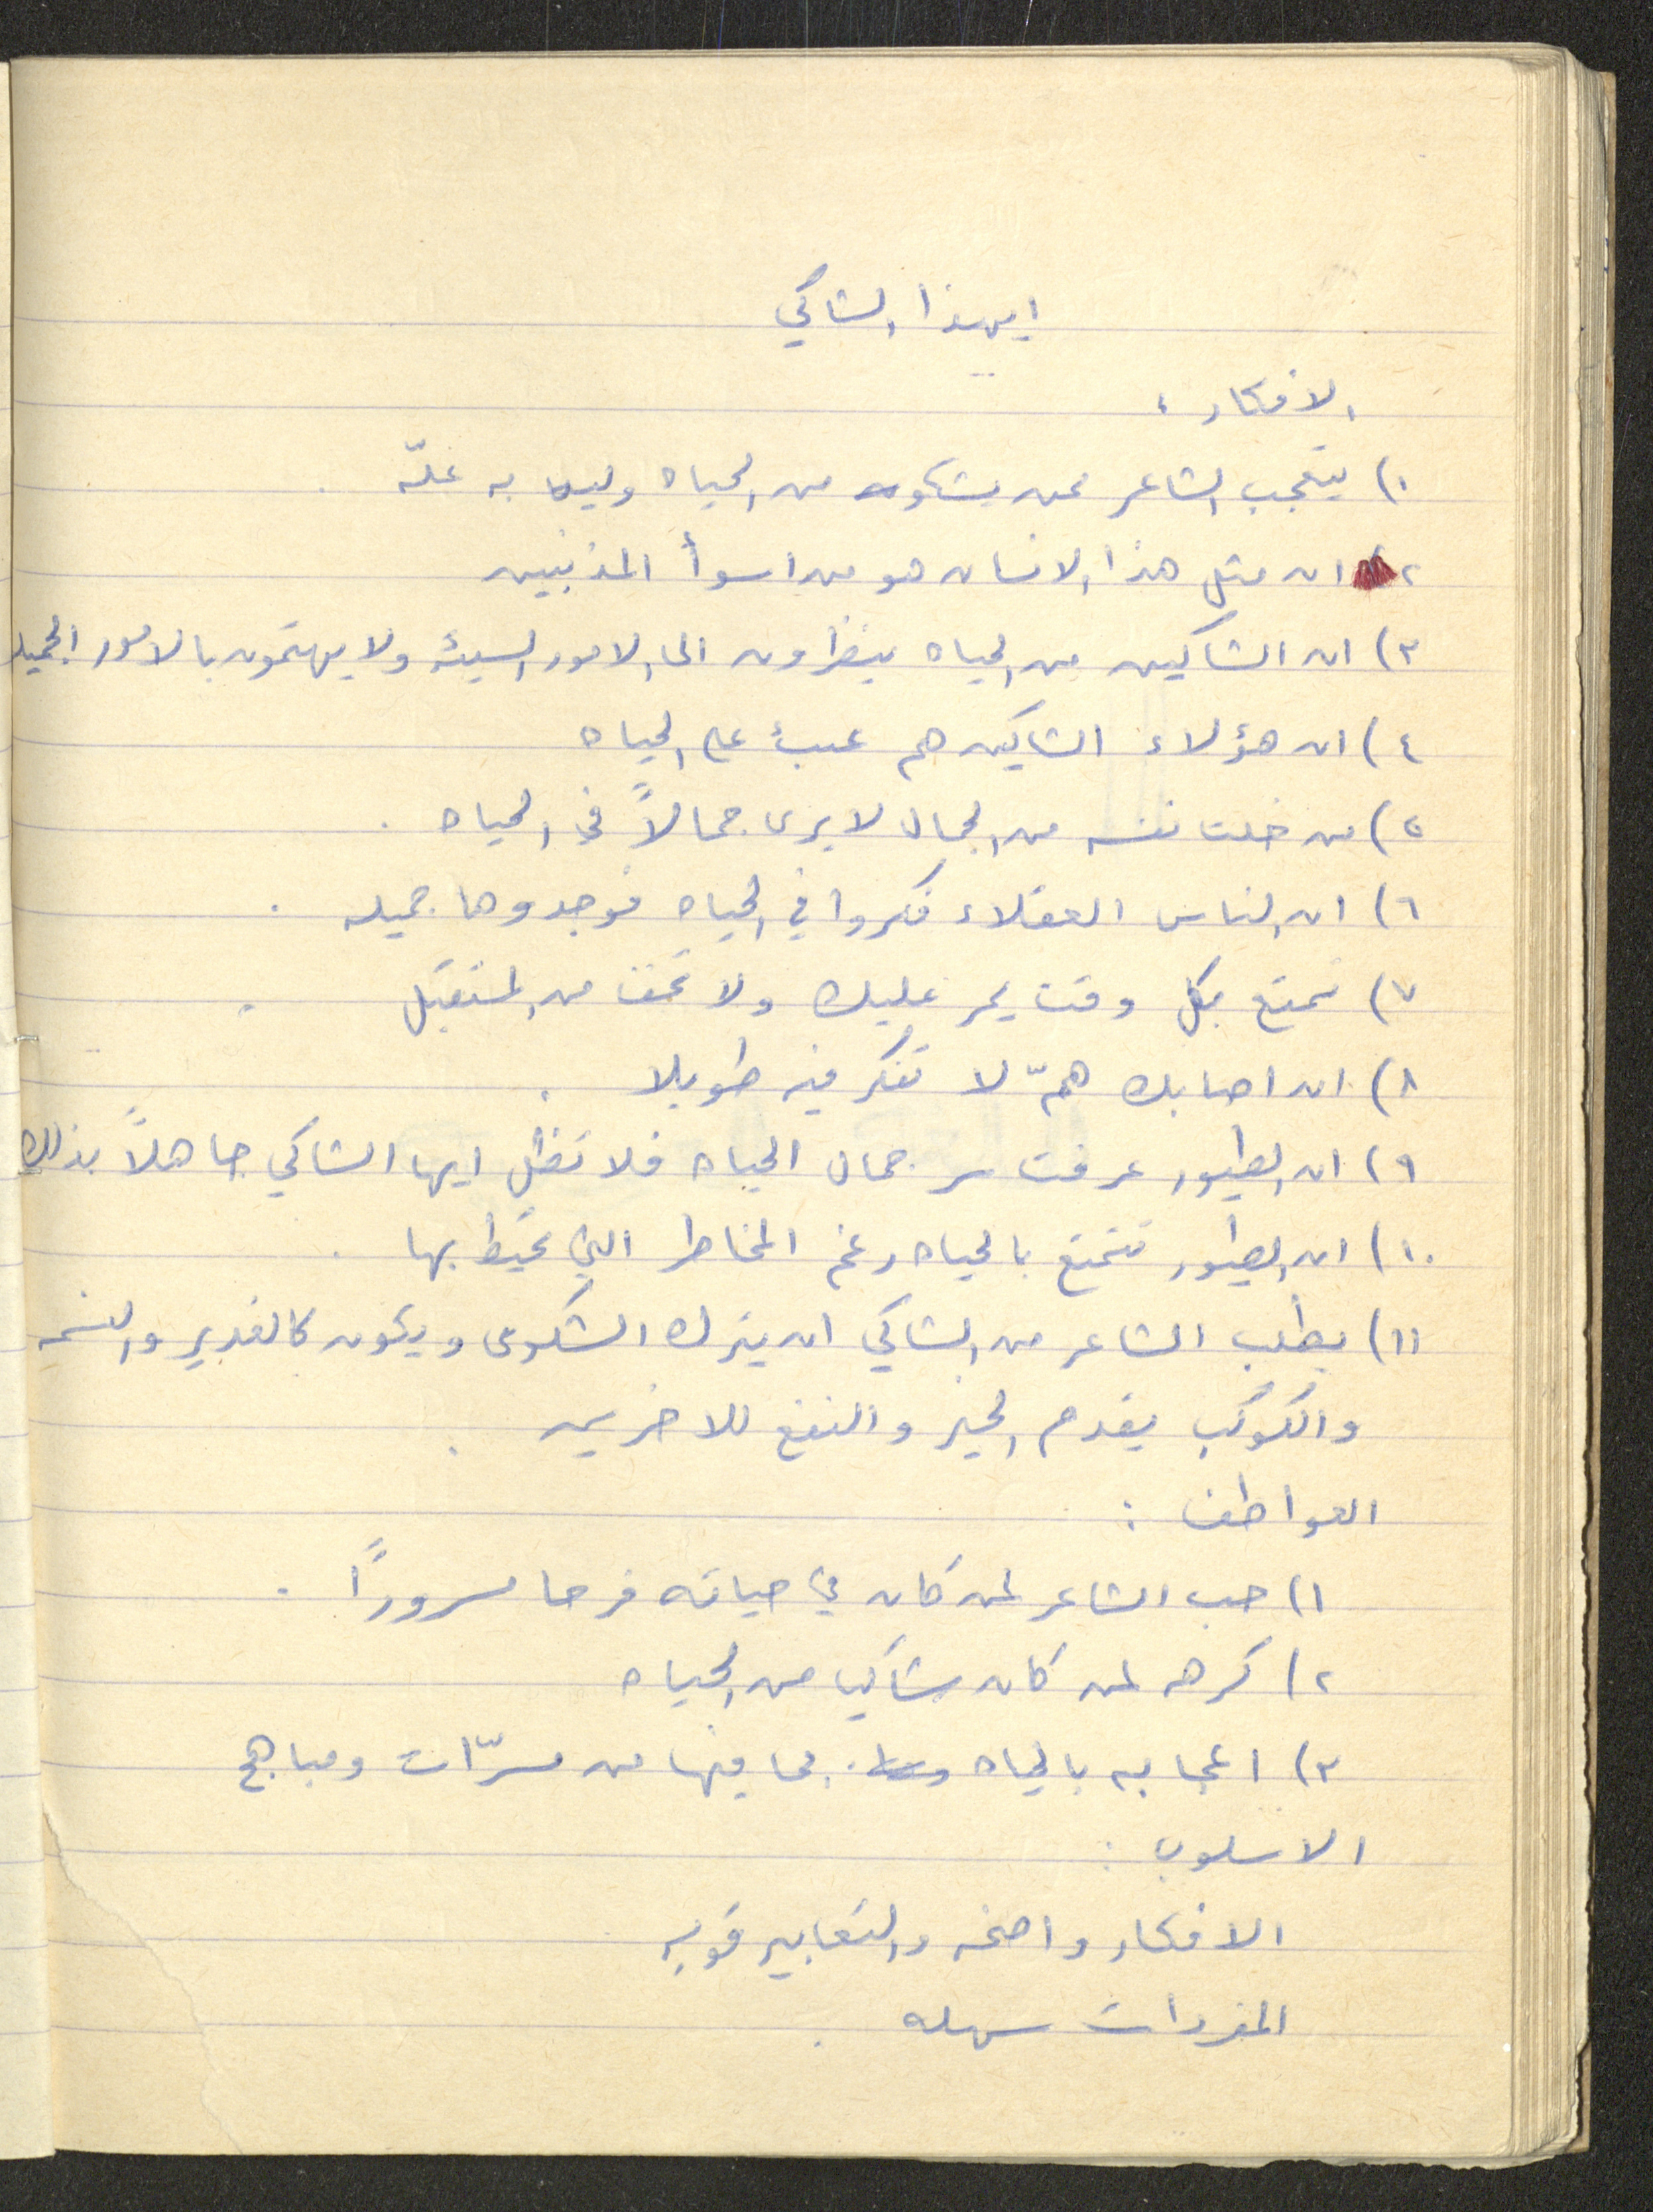 ايهذا الشاكي
الافكار :
١) يتعجب الشاعر ممن يشكو من الحياه وليس به علّه .
٢) ان مثل هذا الانسان هو من اسوأ المذنبين
٣) ان الشاكين من الحياه ينظرون الى الامور السيئه ولا يهتمون بالامور الجميله
٤) ان هؤلاء الشاكين هم عبئ على الحياه
٥) من خلت نفسه من الجمال لا يرى جمالاً في الحياه .
٦) ان الناس العقلاء فكروا في الحياه فوجدوها جميله .
٧) تمتع بكل وقت يمر عليك ولا تخف من المستقبل .
٨) ان اصابك همّ لا تفكر فيه طويلا .
٩) ان الطيور عرفت سر جمال الحياه فلا تظل ايها الشاكي جاهلاً بذلك
١٠) ان الطيور تتمتع بالحياه رغم المخاطر التي تحيط بها .
١١) يطلب الشاعر من الشاكي ان يترك الشكوى ويكون كالغدير والنسمه
والكوكب يقدم الخير والنفع للاخرين .
العواطف :
١) حب الشاعر لمن كان في حياته فرحا مسروراً .
٢) كرهه لمن كان شاكيا من الحياه
٣) اعجابه بالحياه بما فيها من مسرّات ومباهج
الاسلوب :
الافكار واضحه والتعابير قويه
المفردات سهله .